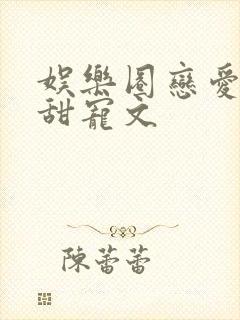 娛樂圈戀愛
甜寵文
陳蕾蕾